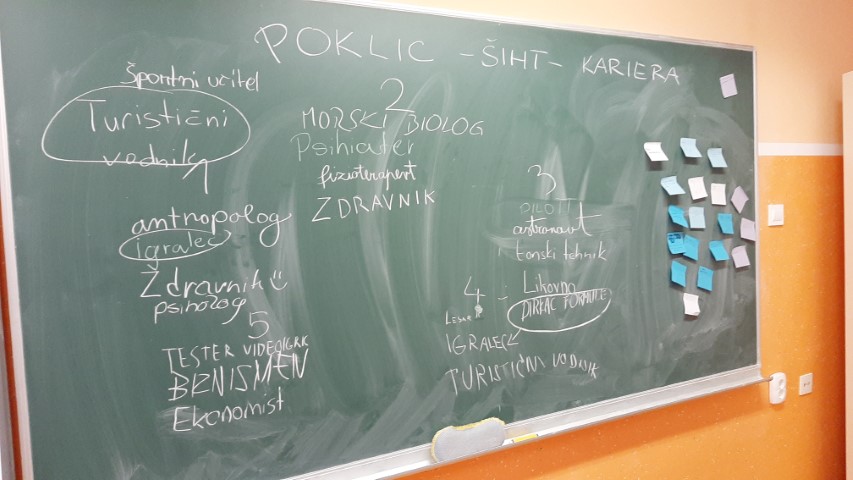 POKLIC - ŠIHT - KARIERA
Športni učitel
Turistični
vodnik
1
antropolog
igralec
Ždravnik
psiholog
2
MORSKI BIOLOG
Psihiater
fizioterapevt
ZDRAVNIK
3
PILOT
astronavt
tonski tehnik
Likovno
DIRKAČ FORMULE
4
IGRALEC
TURISTIČNI VODNIK
5
TESTER VIDEOIGRIC
BIZNISMEN
Ekonomist